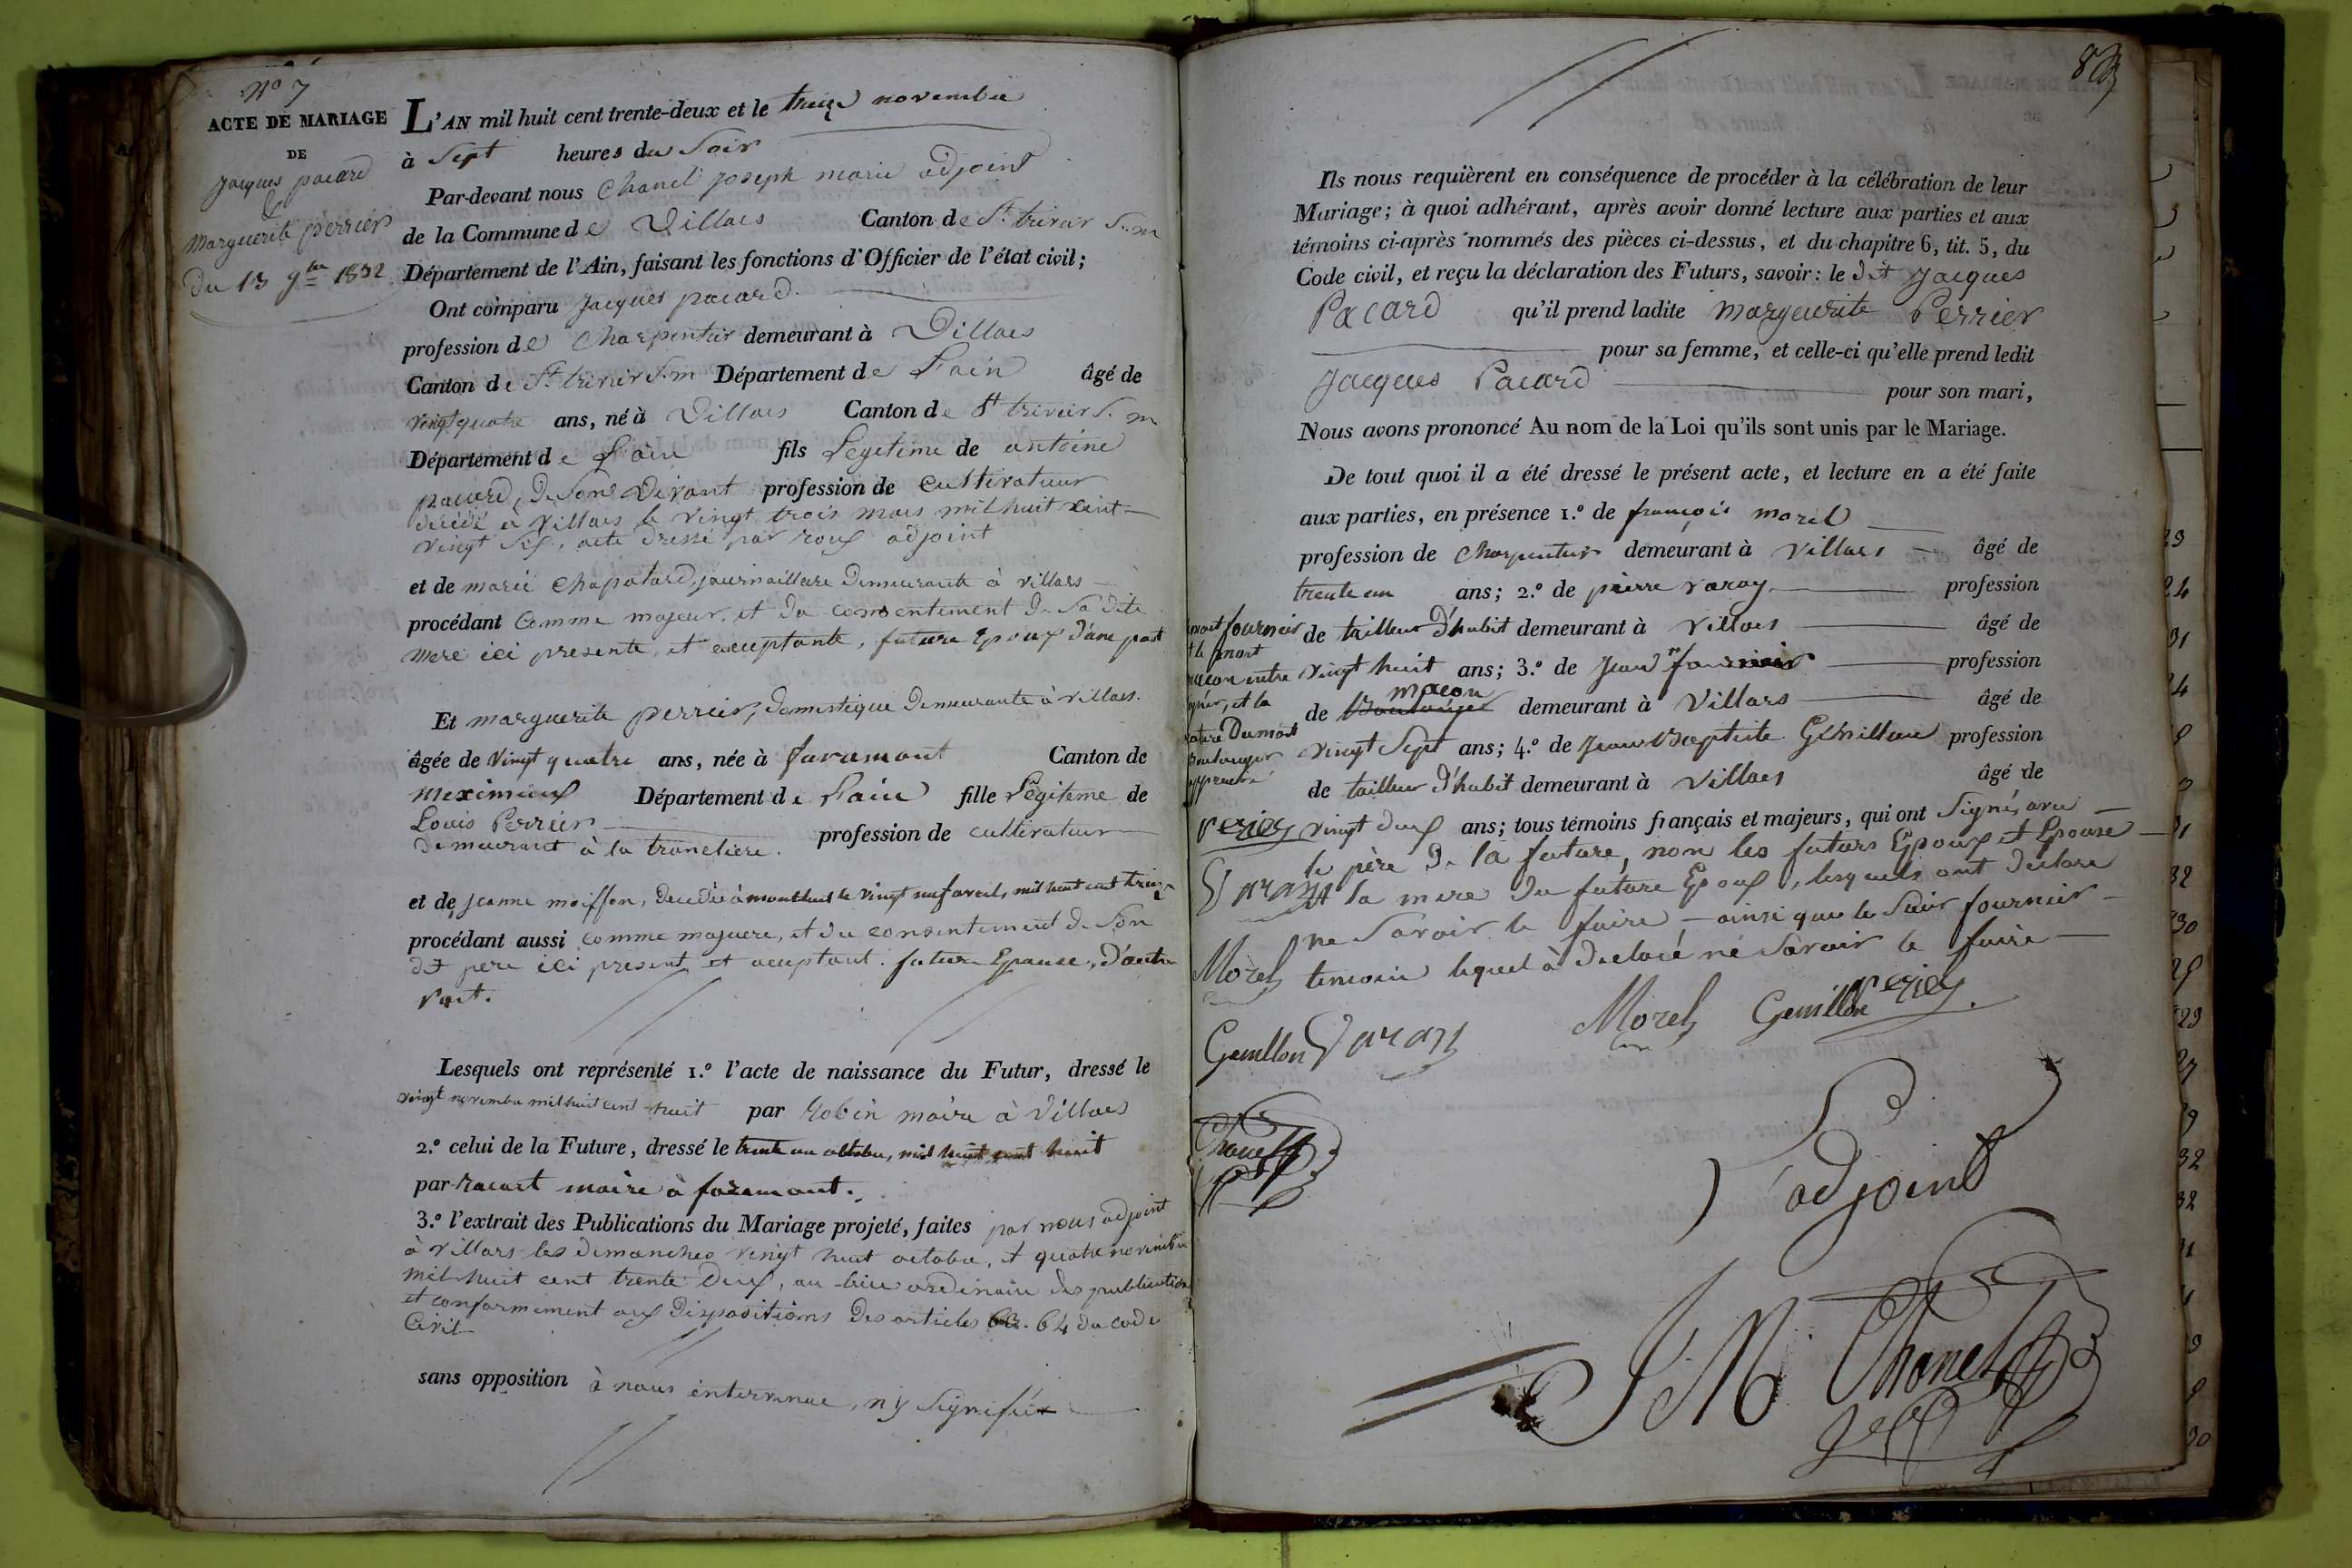 No 7
ACTE DE MARIAGE
DE
Jacques pacard
&
Marguerite perrier
du 13 9bre 1832
L'AN mil huit cent trente-deux et le treize novembre
à Sept heures du Soir
Par-devant nous Chanel Joseph marie adjoint
de la Commune de Villars Canton de St. trivier S. m
Département de l'Ain, faisant les fonctions d'Officier de l'état civil;
Ont comparu Jacques pacard
profession de Charpentier demeurant à Villars
Canton de St. trivier S. m Département de L'ain âgé de
vingt quatre ans, né à Villars Canton de St trivier S. m
Département de L'ain fils Legitime de antoine
pacard, de Son Vivant profession de cultivateur
décédé à Villars le vingt trois mars mil huit cent
vingt six, acte dressé par roux adjoint
et de marie Chapatard, journaillere demeurante à villars
procédant Comme majeur, et du consentement de Sa dite
mere ici presente, et acceptante, future Epoux d'une part
Et marguerite perrier, domestique demeurante à villars.
âgée de vingt quatre ans, née à faramant Canton de
meximieux Département de L'ain fille Légitime de
Louis Perrier profession de cultivateur
demeurant à la tranclière.
et de jeanne moisson, decédée à montluel le vingt neuf avril, mil huit cent treize
procédant aussi comme majeure, et du consentement de Son
dit pere ici present et acceptant. future Epouse, d'autre
part.
Lesquels ont représenté 1.º l'acte de naissance du Futur, dressé le
vingt novembre mil huit cent huit par Robin maire à Villars
2.º celui de la Future, dressé le trente un octobre, mil huit cent huit
par racart maire à faramant.
3.º l'extrait des Publications du Mariage projeté, faites par nous adjoint
à villars les dimanches vingt huit octobre, et quatre novembre
mil huit cent trente deux, au lieu ordinaire des publications
et conformement aux Dispositions des articles 63. 64 du code
Civil
sans opposition à nous intervenue, ny Signifiée
Ils nous requièrent en conséquence de procéder à la célébration de leur
Mariage; à quoi adhérant, après avoir donné lecture aux parties et aux
témoins ci-après nommés des pièces ci-dessus, et du chapitre 6, tit. 5, du
Code civil, et reçu la déclaration des Futurs, savoir: le dit Jacques
Pacard qu'il prend ladite Marguerite Perrier
pour sa femme, et celle-ci qu'elle prend ledit
Jacques Pacard pour son mari,
Nous avons prononcé Au nom de la Loi qu'ils sont unis par le Mariage.
De tout quoi il a été dressé le présent acte, et lecture en a été faite
aux parties, en présence 1.º de françois morel
profession de Charpentier demeurant à Villars âgé de
trente un ans; 2.º de pierre varay profession
de tailleur d'habit demeurant à Villars âgé de
vingt huit ans; 3.º de Jean fournier profession
de Boulanger maçon demeurant à Villars âgé de
vingt Sept ans; 4.º de Jean Baptiste Génillon profession
de tailleur d'habit demeurant à Villars âgé de
vingt deux ans; tous témoins français et majeurs, qui ont Signé, avec
le père de la future, non les futurs Epoux et Epouse
la mere du future Epoux, lesquels ont declaré
ne Savoir le faire, ainsi que le Sieur fournier
temoin lequel à declaré ne Savoir le faire
mot fournier
et le mot
maçon entre
ligner, et la
rature du mot
Boulanger
approuvé
Varay
Morel
Genillon Varay
Chanel
Morel Genillon
L'adjoint
J M Chanel